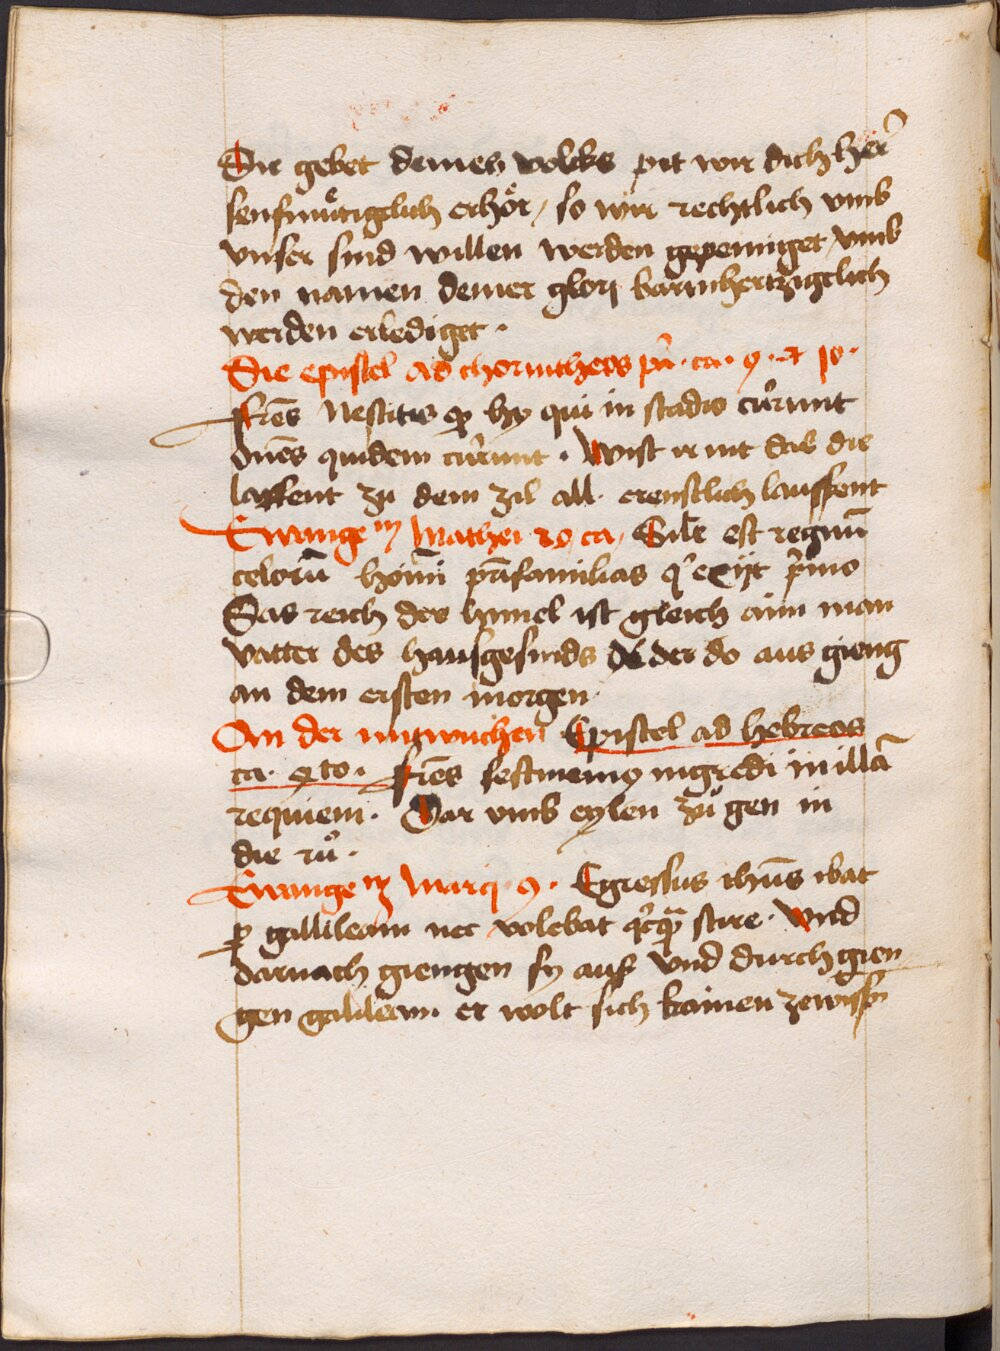 Die gebet deineß volcks pit wir dich her̄
senfmuͤtigglich erhoͤr / so wir rechtlich vmb
vnser sind willen werden gepeiniget / vmb
den namen deiner glorj barmhertzigclich
werden erlediget ·
Die epistel ad chorintheos pͥ · ca · 9 · et 10 ·
Fr̄es Nestitis ꝙ hÿ qui in stadio cur̄unt
om̄es quidem cur̄unt · Wist ir nit das die
lauffent zu dem zil all · ernstlich lauffent
Ewange m̄ Mathei 20 ca / Simile est regnū
celorū homī pr̄familias qͥ exijt pͥmo
Das reich der himel ist gleich aim man
vatter des haußgesinds der do aus gieng
an dem ersten morgen ·
An der mitwuchen Epistel ad hebreos
ca · 4to · Fr̄es festinemꝰ ingredi in illā
requiem · Dar vmb eylen zuͦ gen in
die ruͦ ·
Ewange m̄ Marci · 9 · Egressus ihūs ibat
ꝑ gallileam nec volebat qͥcqͣ scire · Vnd
darnach giengen sy auß vnd durch gien
gen galileam er wolt sich kainen zewissn̄